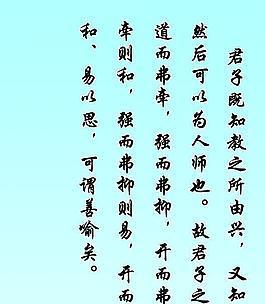 君子既知教之所由兴，又知
然后可以为人师也。故君子之
道而弗牵，强而弗抑，开而弗
牵则和，强而弗抑则易，开而
和、易以思，可谓善喻矣。